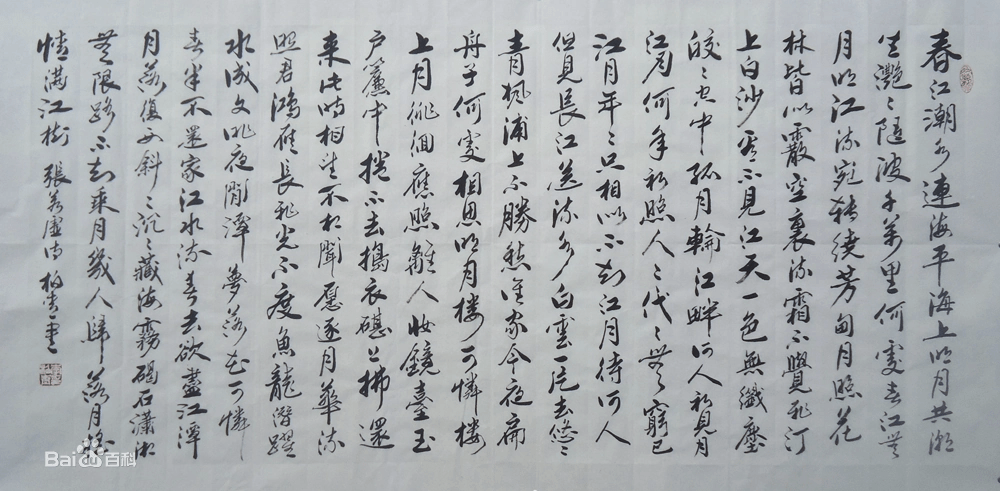 春江潮水連海平海上明月共潮
生灧々隨波千萬里何處春江無
月明江流宛轉繞芳甸月照花
林皆似霰空裏流霜不覺飛汀
上白沙看不見江天一色無纖塵
皎々空中孤月輪江畔何人初見月
江月何年初照人人代代無窮已
江月年年只相似不知江月待何人
但見長江送流水白雲一片去悠々
青楓浦上不勝愁誰家今夜扁
舟子何處相思明月樓可憐樓
上月徘徊應照離人妝鏡臺玉
戶簾中捲不去搗衣砧上拂還
來此時相望不相聞願逐月華流
照君鴻雁長飛光不度魚龍潛躍
水成文昨夜閒潭夢落花可憐
春半不還家江水流春去欲盡江潭
月落復西斜斜沉沉藏海霧碣石瀟湘
無限路不知乘月幾人歸落月搖
情滿江樹 張若虛詩
Bai 百科